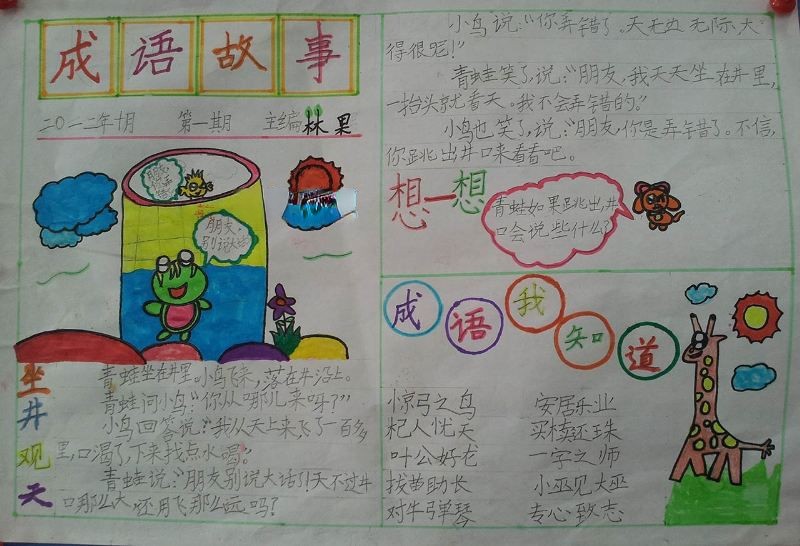 成语故事
二〇一二年十月 第一期 主编 林果
朋友,
别说大话
坐井观天
青蛙坐在井里。小鸟飞来,落在井沿上。
青蛙问小鸟:“你从哪儿来呀?”
小鸟回答说:“我从天上来,飞了一百多
里,口渴了,下来找点水喝。”
青蛙说:“朋友别说大话了!天不过井
口那么大,还用飞那么远吗?”
小鸟说:“你弄错了。天无边无际,大
得很呢!”
青蛙笑了,说:“朋友,我天天坐在井里,
一抬头就看天。我不会弄错的。”
小鸟也笑了,说:“朋友,你是弄错了。不信,
你跳出井口来看看吧。
想一想
青蛙如果跳出井
口会说些什么?
成语我知道
惊弓之鸟 安居乐业
杞人忧天 买椟还珠
叶公好龙 一字之师
拔苗助长 小巫见大巫
对牛弹琴 专心致志